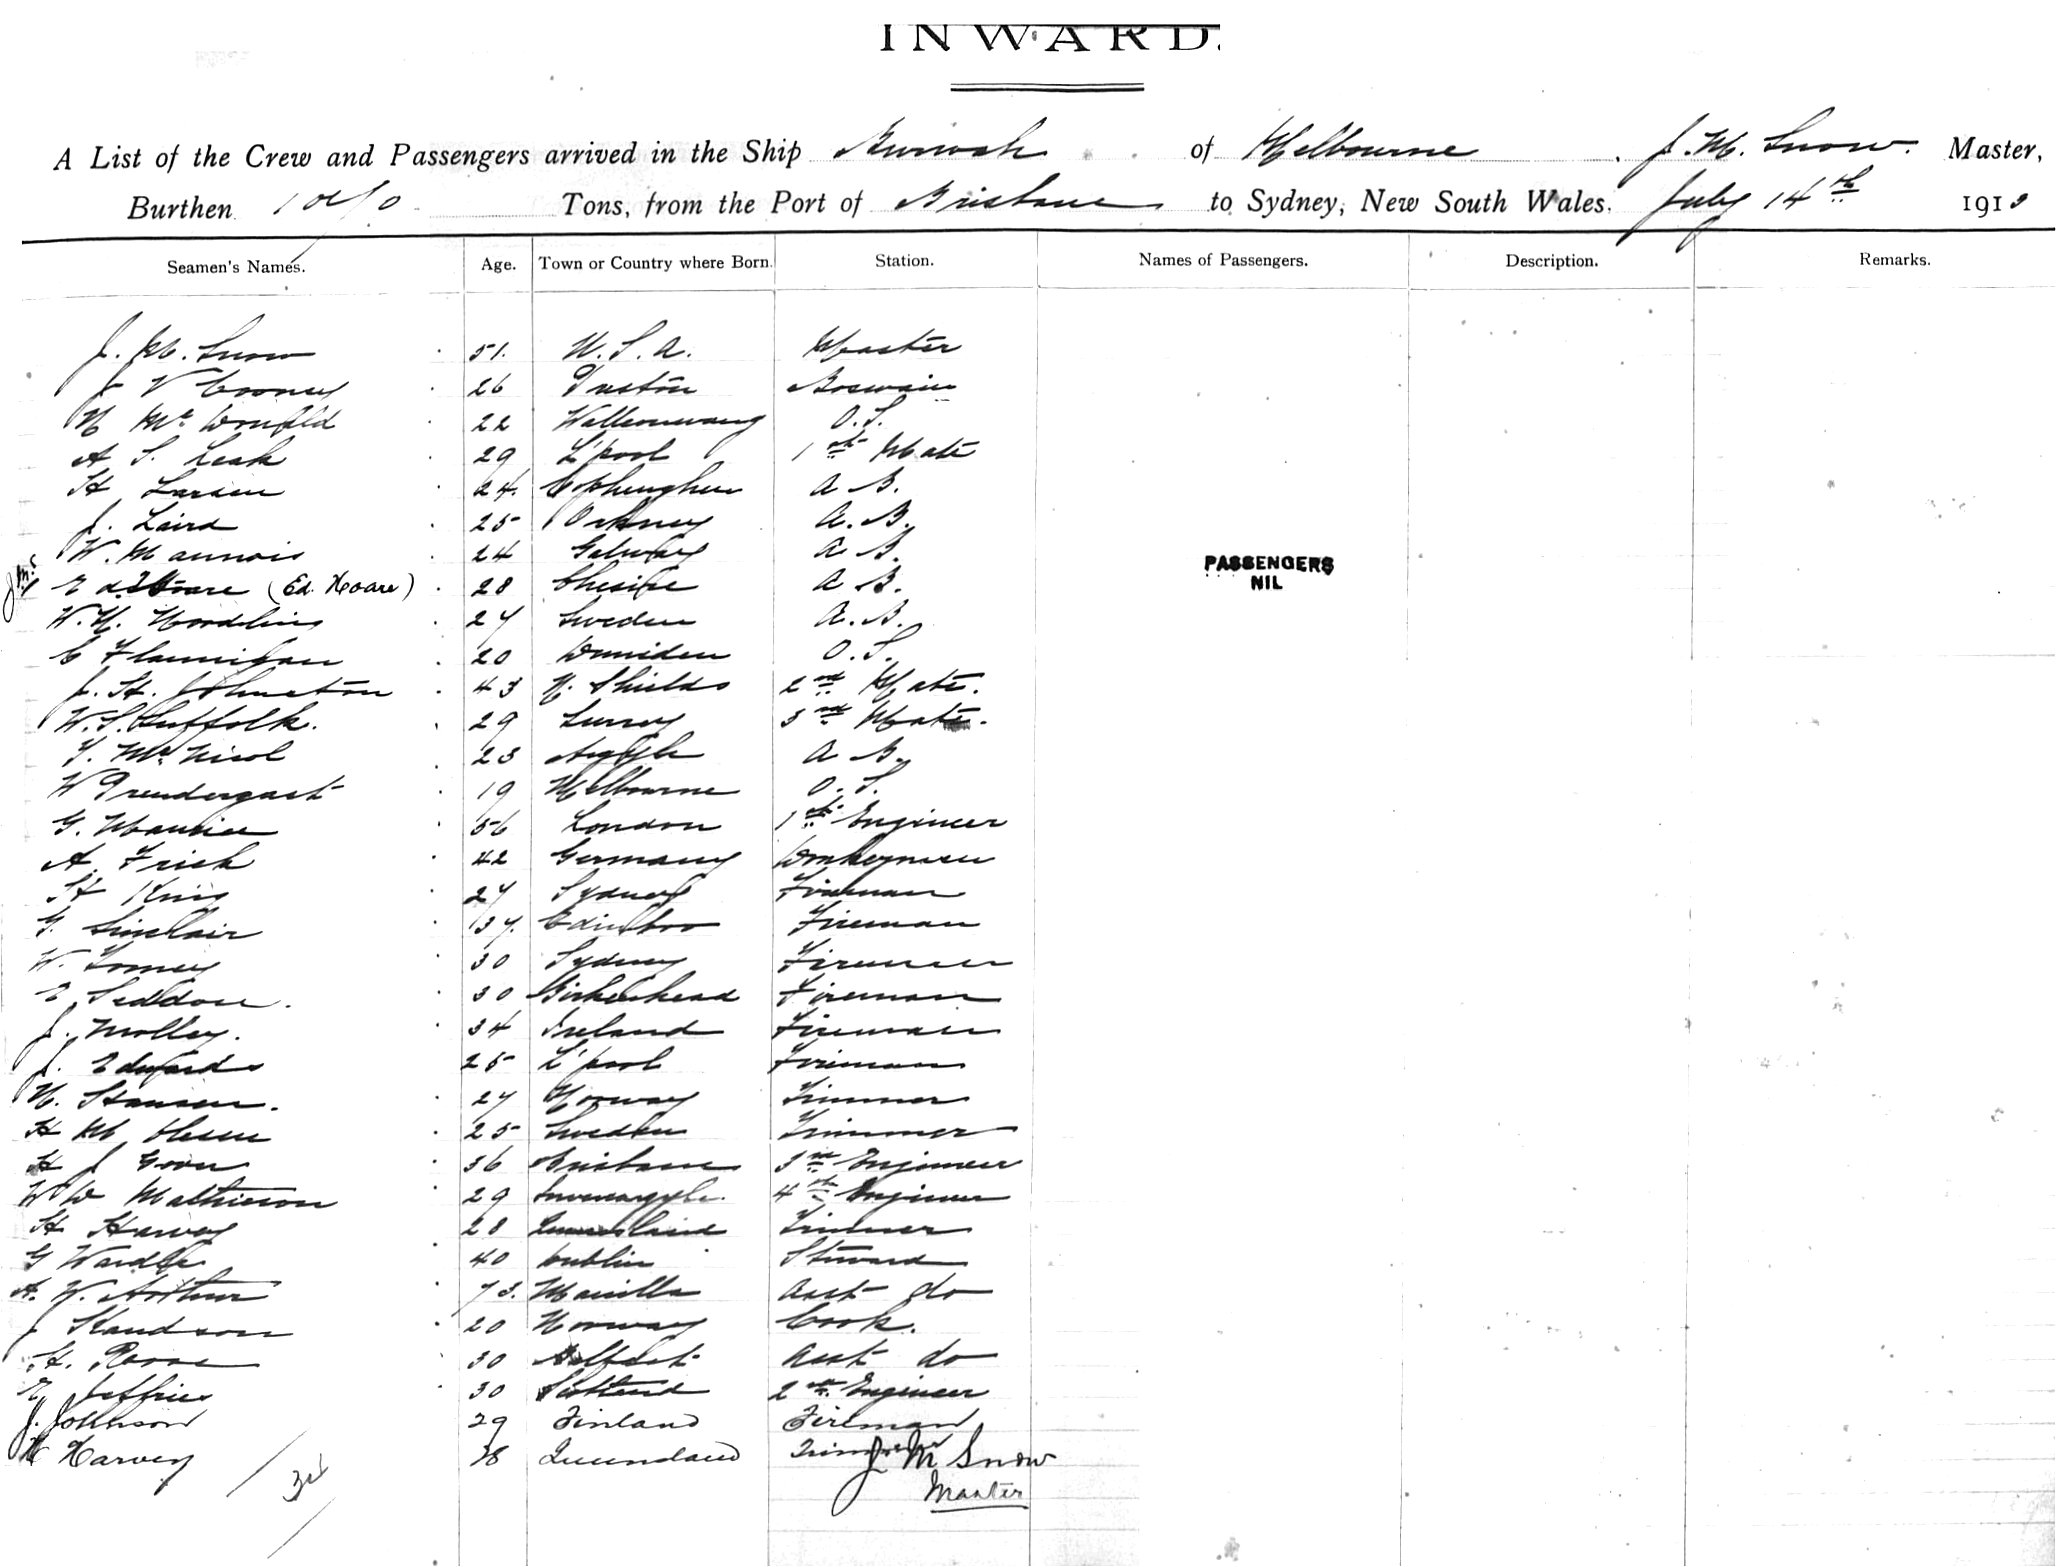 INWARD.
A List of the Crew and Passengers arrived in the Ship Burwah of Melbourne J. M. Snow. Master,
Burthen Tons, from the Port of Brisbane to Sydney, New South Wales. July 14th 191
Seamen's Names. Age. Town or Country where Born. Station. Names of Passengers. Description. Remarks.
J. M. Snow 51. U. S. A. Master
J V Cooney 26 Preston Boswain
N Mc Donald 22 Wallerawang O. S.
A S. Leak 29 L'pool 1st Mate
H Larsen 24. A B.
J. Laird 25 Orkney A. B.
W. 24 Galway A B.
E d Hoare (Ed. Hoare) 28 A B.
PASSENGERS
NIL
W. H. 27 Sweden A. B.
C Flannigan 20 O. S.
J. H. Johnston 43 N. Shields 2nd Mate.
W. S. Suffolk. 29 Surrey 3rd Mate.
Mc Nicol 23 Argyle A B.
W Prendergast 19 Melbourne O. S.
G. Maurice 56 London 1st Engineer
A. Frick 42 Germany Donkeyman
H King 27 Sydney Fireman
G. Sinclair 37. Edinboro Fireman
W. 30 Sydney Fireman
E Seddon. 30 Birkenhead Fireman
J. Molley. 34 Ireland Fireman
J. Edwards 25 L'pool Fireman
N. Hansen. 27 Norway Trimmer
H M Olesen 25 Sweden Trimmer
H J 36 Brisbane 3rd Engineer
W W Mathieson 29 4th Engineer
H Harvey 28 Trimmer
G Wardle 40 Dublin Steward
A. W. Arthur 73. Manilla Asst do
J 20 Norway Cook.
H. 30 Belfast Asst do
E Jeffries 30 Scotland 2nd Engineer
J. Johnson 29 Finland Fireman
H Harvey Queensland Trimmer
J M Snow
Master
34